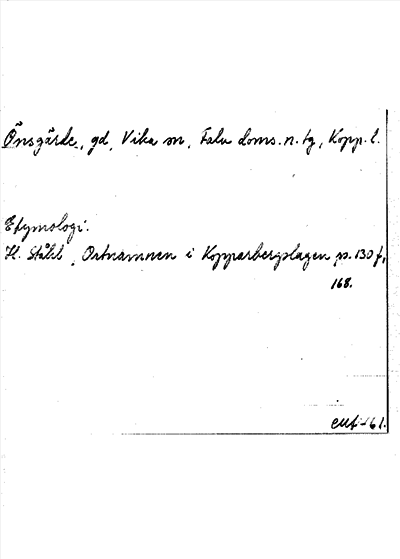 Önsgärde, gd, Vika sn, Falu doms. n. tg, Kopp. l.
Etymologi.
H. Ståhl, Ortnamnen i Kopparbergslagen, s. 130 f,
168.
-61.